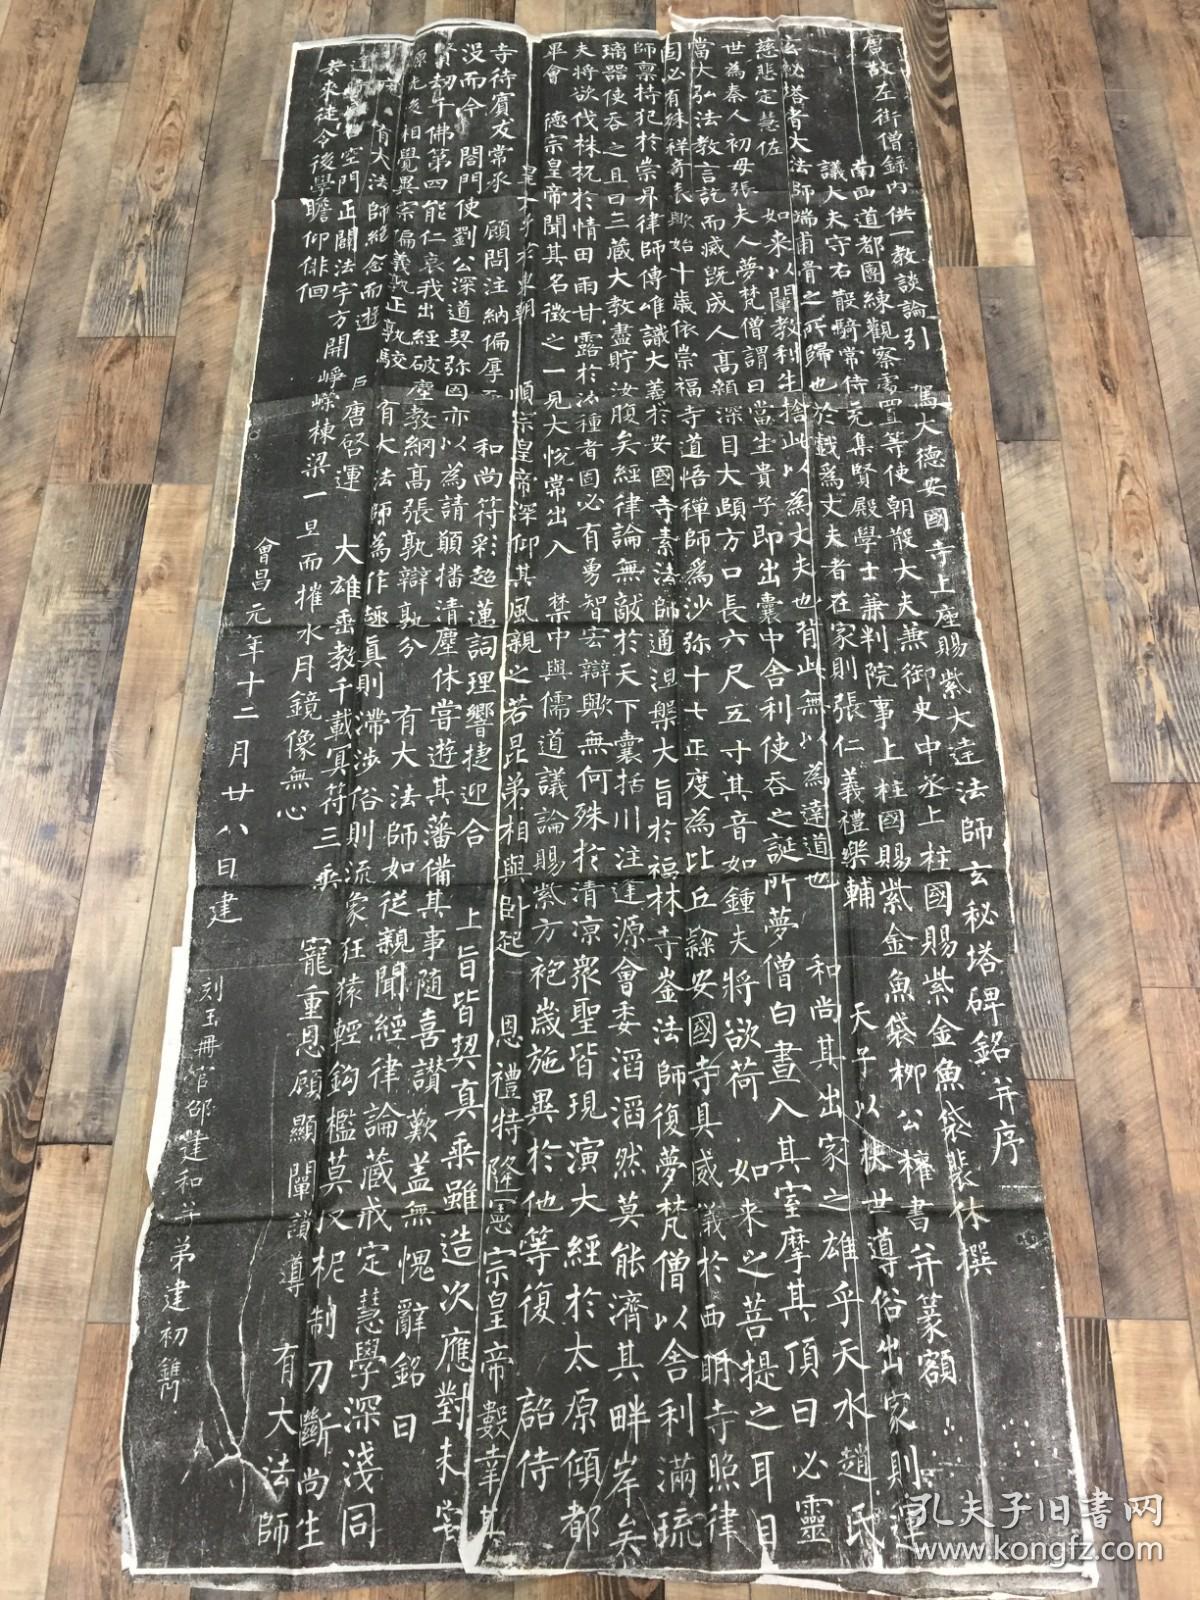 唐故左街僧錄內供奉三教談論引　駕大德安國寺上座賜紫大達法師玄秘塔碑銘并序
南西道都團練觀察處置等使朝散大夫兼御史中丞上柱國賜紫金魚袋裴休撰
議大夫守右散騎常侍充集賢殿學士兼判院事上柱國賜紫金魚袋柳公權書并篆額
玄秘塔者大法師端甫骨之所歸也於戲為丈夫者在家則張仁義禮樂輔　天子以扶世導俗出家則運
慈悲定慧佐　如來以闡教利生捨此以為丈夫也背此無以為達道也　和尚其出家之雄乎天水趙氏
世為秦人初母張夫人夢梵僧謂曰當生貴子即出囊中舍利使吞之誕所夢僧白晝入其室摩其頂曰必
當大弘法教言訖而滅既成人高顙深目大頤方口長六尺五寸其音如鍾夫將欲荷　如來之菩提
固必有殊祥奇表歟始十歲依崇福寺道悟禪師為沙弥十七正度為比丘隸安國寺具威儀於西明寺照律
師稟持犯於崇昇律師傳唯識大義於安國寺素法師通涅槃大旨於福林寺崟法師復夢梵僧以舍利滿琉
璃器使吞之且曰三藏大教盡貯汝腹矣經律論無敵於天下囊括川注逢源會委滔滔然莫能濟其畔岸矣
夫將欲伐株杌於情田雨甘露於法種者固必有勇智宏辯歟無何殊於清凉衆聖皆現演大經於太原傾都
畢會　德宗皇帝聞其名徵之一見大悅常出入　禁中與儒道議論賜紫方袍歲施異於他等復　詔侍
皇太子於東朝　順宗皇帝深仰其風親之若昆弟相與卧起　恩禮特隆憲宗皇帝數幸其
寺待賓友常承　顧問注納偏厚　和尚符彩超邁詞理響捷迎合　上旨皆契真乘雖造次應對未
没而今　閤門使劉公深道契弥固亦以為請願播清塵休嘗遊其藩備其事隨喜讃歎盖無愧辭銘曰
賢劫千佛第四能仁哀我出經破塵教綱高張孰辯孰分　有大法師如從親聞經律論藏戒定慧學深淺同
源先後相覺異宗偏義孰正孰駁　有大法師為作極真則滯涉俗則流象狂猿輕鈎檻莫收柅制刀斷尚生
有大法師絕念而遊　巨唐啓運　大雄垂教千載冥符三乘　寵重恩顧顯闡讃導　有大法師
空門正闢法宇方開崢嶸棟梁一旦而摧水月鏡像無心
去來徒令後學瞻仰徘徊
會昌元年十二月廿八日建
刻玉冊官邵建和并弟建初鐫
孔夫子旧书网
www.kongfz.com